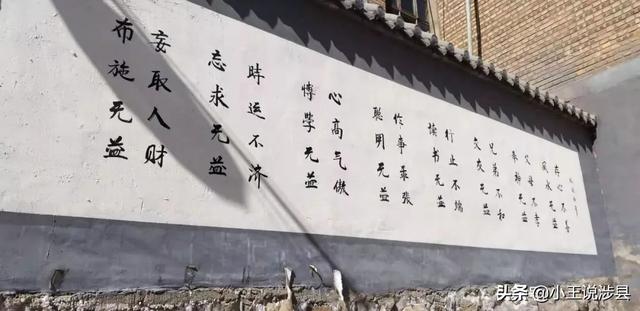 存心不善
风水无益
父母不孝
奉神无益
兄弟不和
交友无益
行止不端
读书无益
作事乖张
聪明无益
心高气傲
博学无益
时运不济
忘求无益
妄取人财
布施无益
头条 @小王说涉县